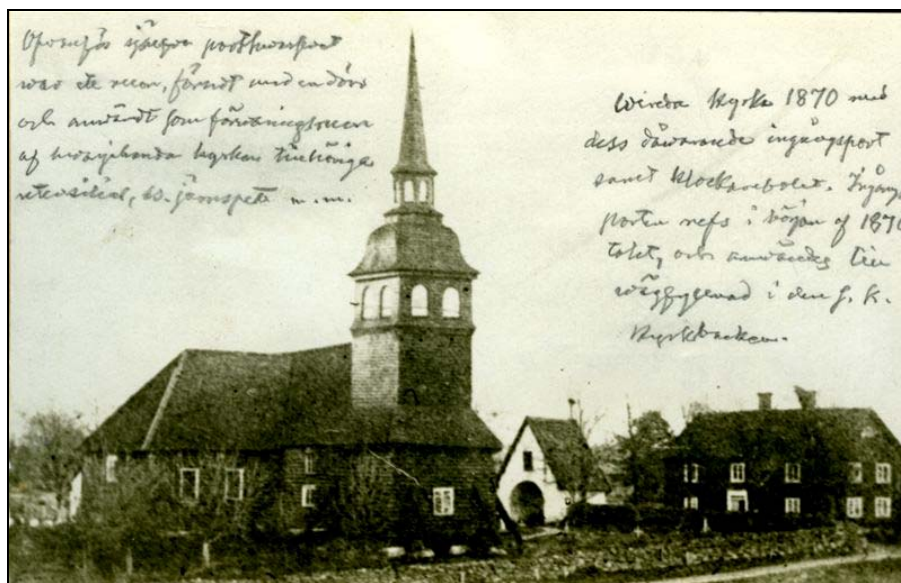 Ofvanför själfva porthvalfvet
war ett rum, försedt med en dörr
och användt som förvaringsrum
af hvarjehanda kyrkan tillhöriga
utensilier, ss. järnspett m. m.
Wirda Kyrka 1870 med
dess dåvarande ingångsport
samt Klockarebolet. Ingångs
porten refs i början af 1870
talet, och användes till
vägbyggnad i den s. k.
Kyrkbacken.